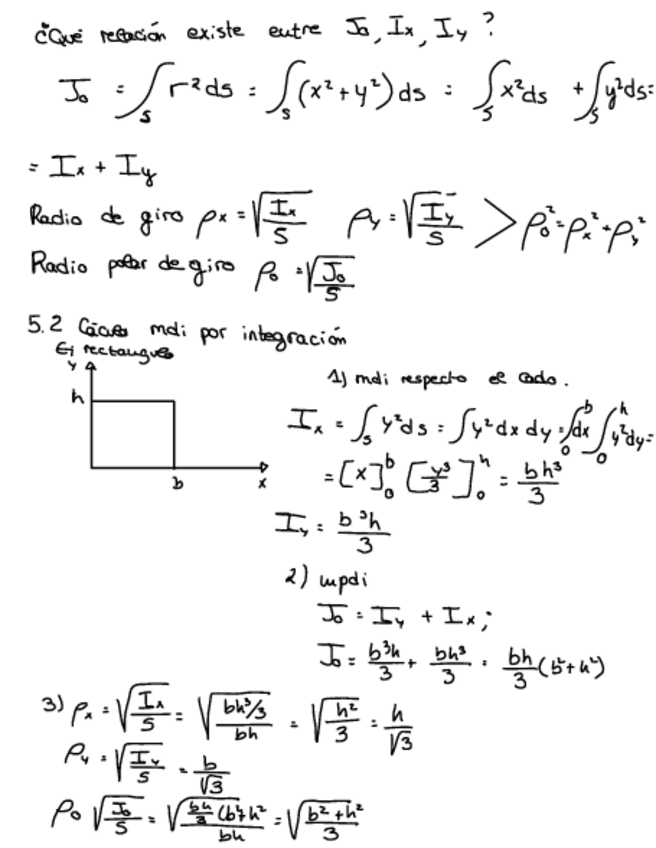 ¿Qué relación existe entre J₀, Iₓ, I_y ?
J₀ = ∫_S r² ds = ∫_S (x² + y²) ds = ∫_S x² ds + ∫_S y² ds =
= Iₓ + I_y
Radio de giro ρₓ = √(Iₓ/S) ρ_y = √(I_y/S) > ρ₀² = ρₓ² + ρ_y²
Radio polar de giro ρ₀ = √(J₀/S)
5.2 mdi por integración
Ej rectangulo
y
h
b
x
1) mdi respecto el lado.
Iₓ = ∫_S y² ds = ∫ y² dx dy = ∫₀ᵇ dx ∫₀ʰ y² dy =
= [x]₀ᵇ [y³/3]₀ʰ = bh³/3
I_y = b³h/3
2) mpdi
J₀ = I_y + Iₓ ;
J₀ = b³h/3 + bh³/3 = bh/3 (b² + h²)
3) ρₓ = √(Iₓ/S) = √((bh³/3)/bh) = √(h²/3) = h/√3
ρ_y = √(I_y/S) = b/√3
ρ₀ √(J₀/S) = √((bh/3 (b² + h²)/bh) = √((b² + h²)/3)